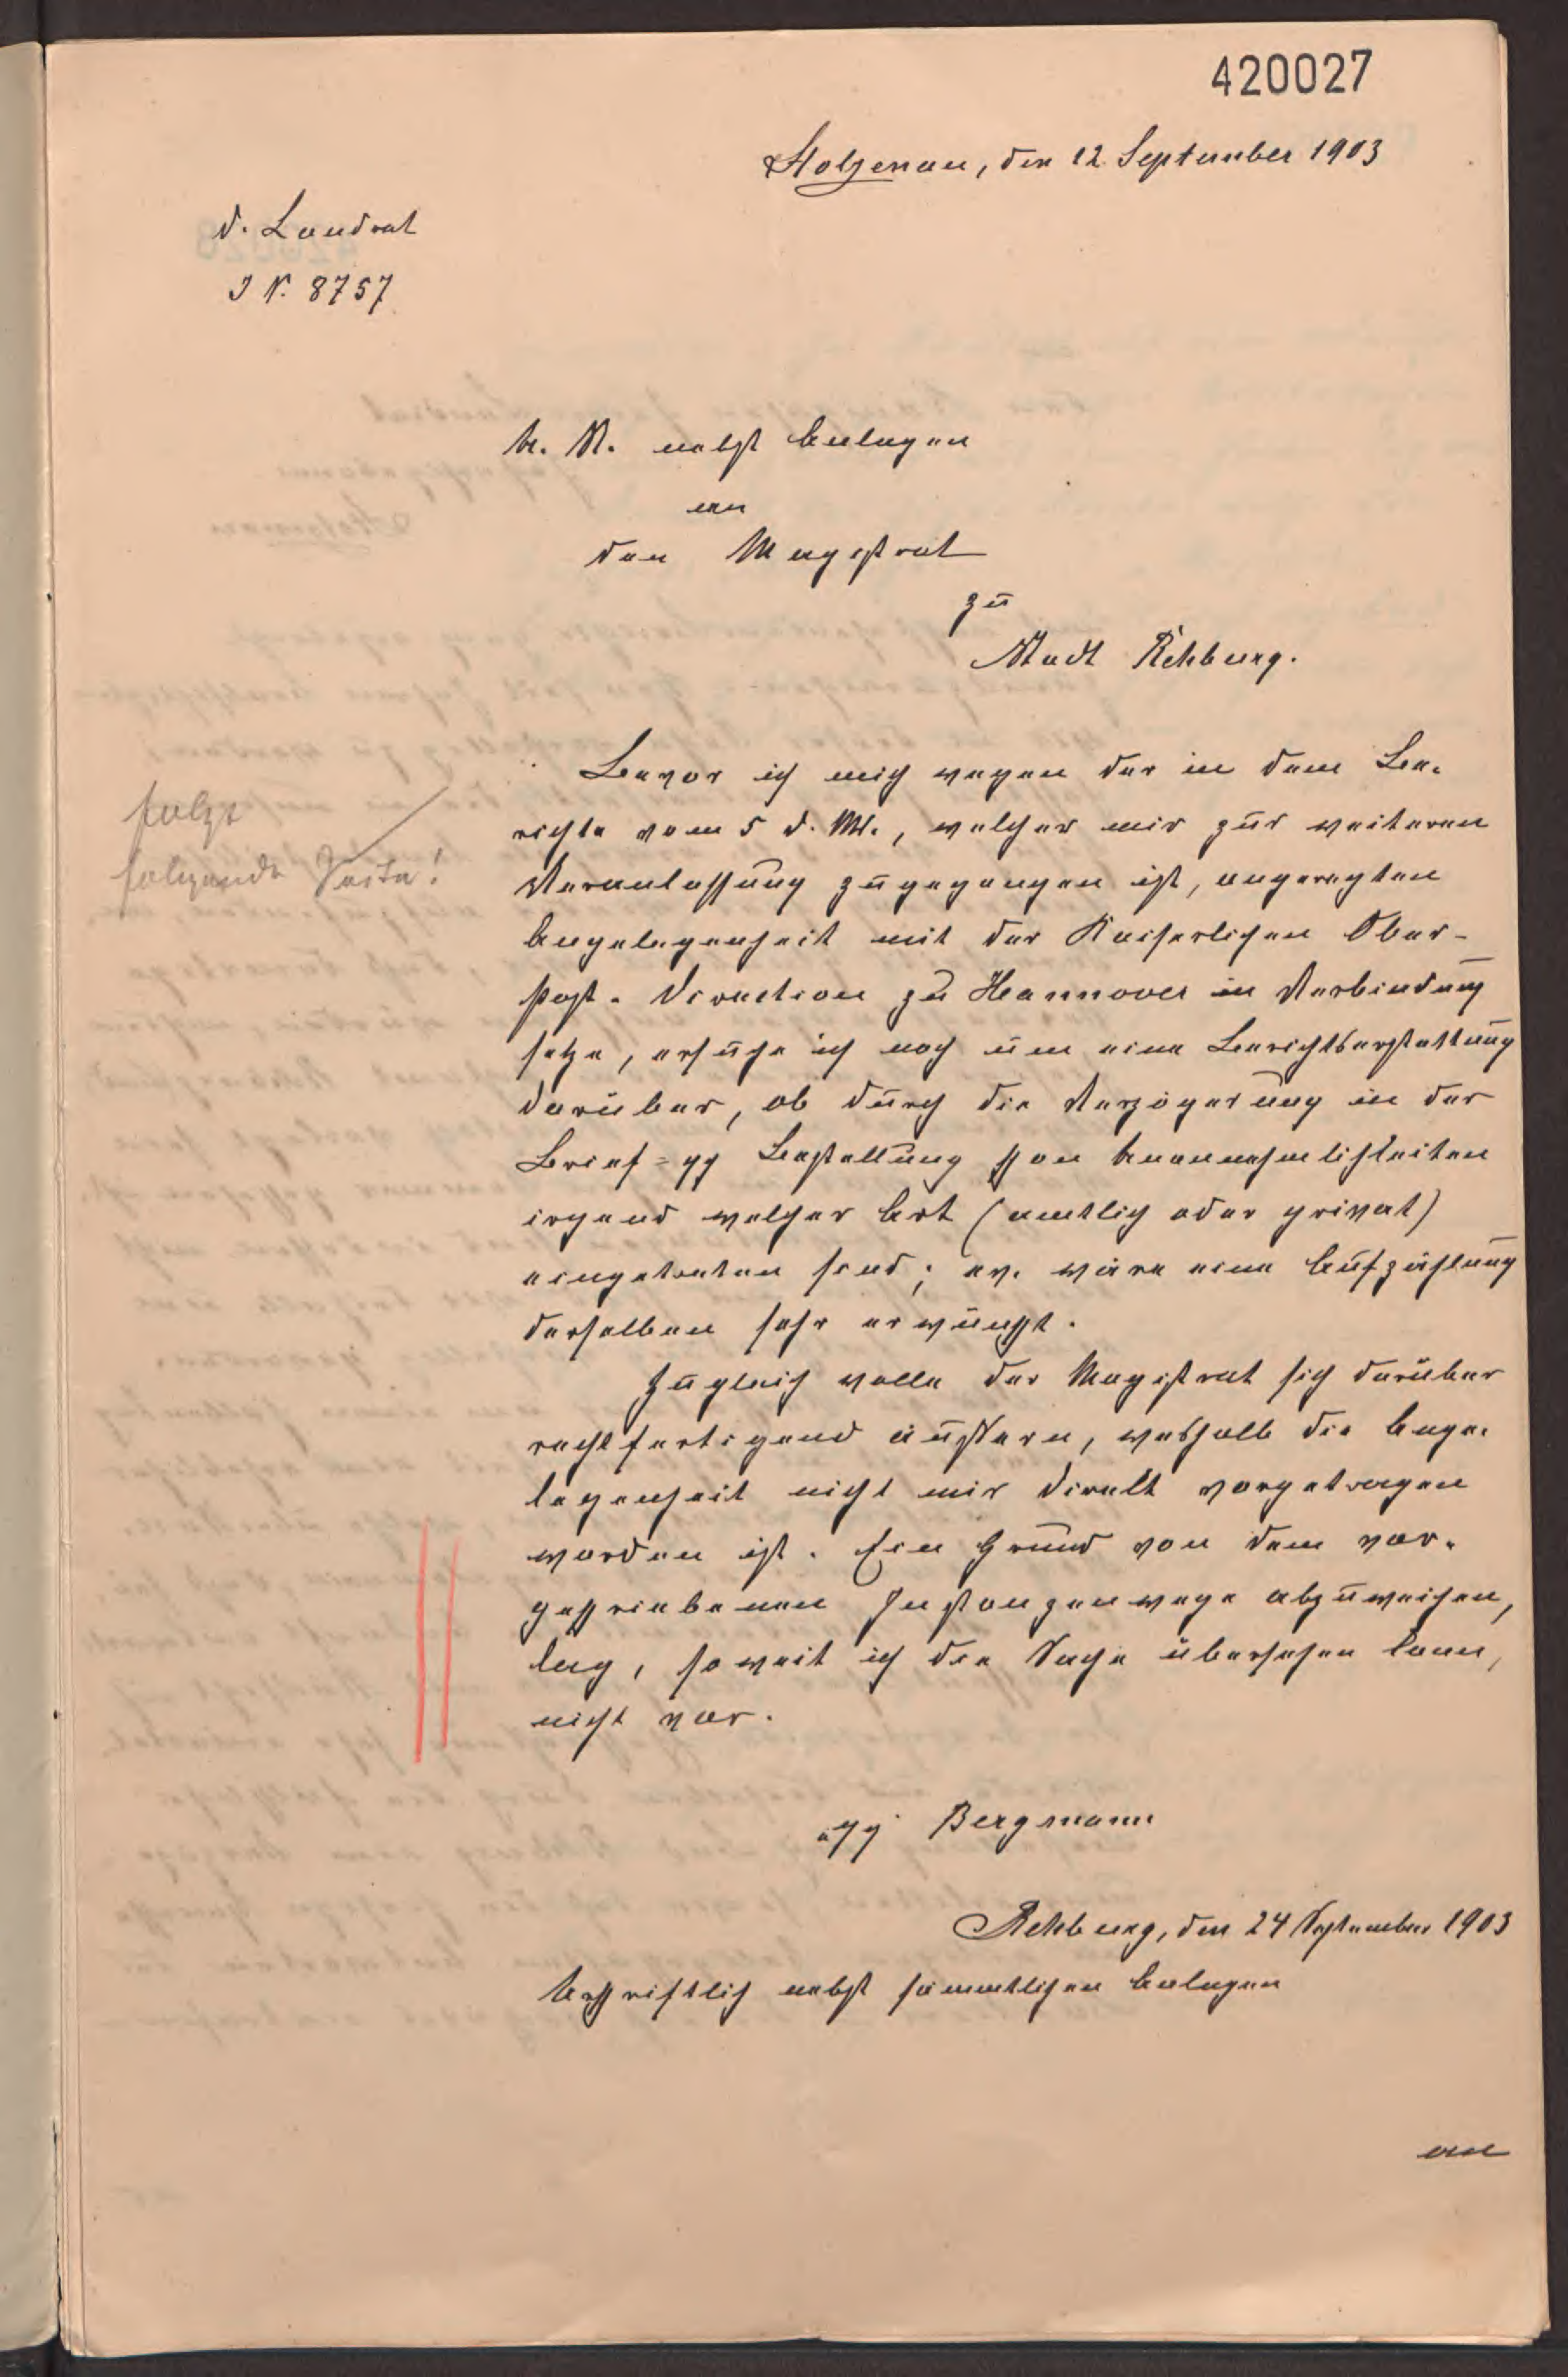 420027
Stolzenau, den 12. September 1903
D. Landrat
J N. 8757
U. R. nebst Anlagen
an
den Magistrat
zu
Stadt Rehburg.
Bevor ich mich wegen der in dem Be-
richte vom 5 d. Mt., welcher mir zur weiteren
Veranlassung zugegangen ist, angeregten
Angelegenheit mit der Kaiserlichen Ober-
post-Direction zu Hannover in Verbindung
setze, ersuche ich noch um eine Berichtserstattung
darüber, ob durch die Verzögerung in der
Brief= pp Bestellung schon Unannehmlichkeiten
irgend welcher Art (amtlich oder privat)
eingetreten sind; ev. wäre eine Aufzählung
derselben sehr erwünscht.
Zugleich wolle der Magistrat sich darüber
rechtfertigend äußern, weshalb die Ange-
legenheit nicht mir direkt vorgetragen
worden ist. Ein Grund von dem vor-
geschriebenen Instanzenwege abzuweichen,
lag, soweit ich die Sache übersehen kann,
nicht vor.
Bergmann
Rehburg, den 24 September 1903
Urschriftlich nebst sämmtlichen Anlagen
an
folgt
folgende Seite!